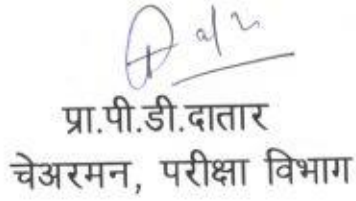 प्रा.पी.डी.दातार
चेअरमन, परीक्षा विभाग